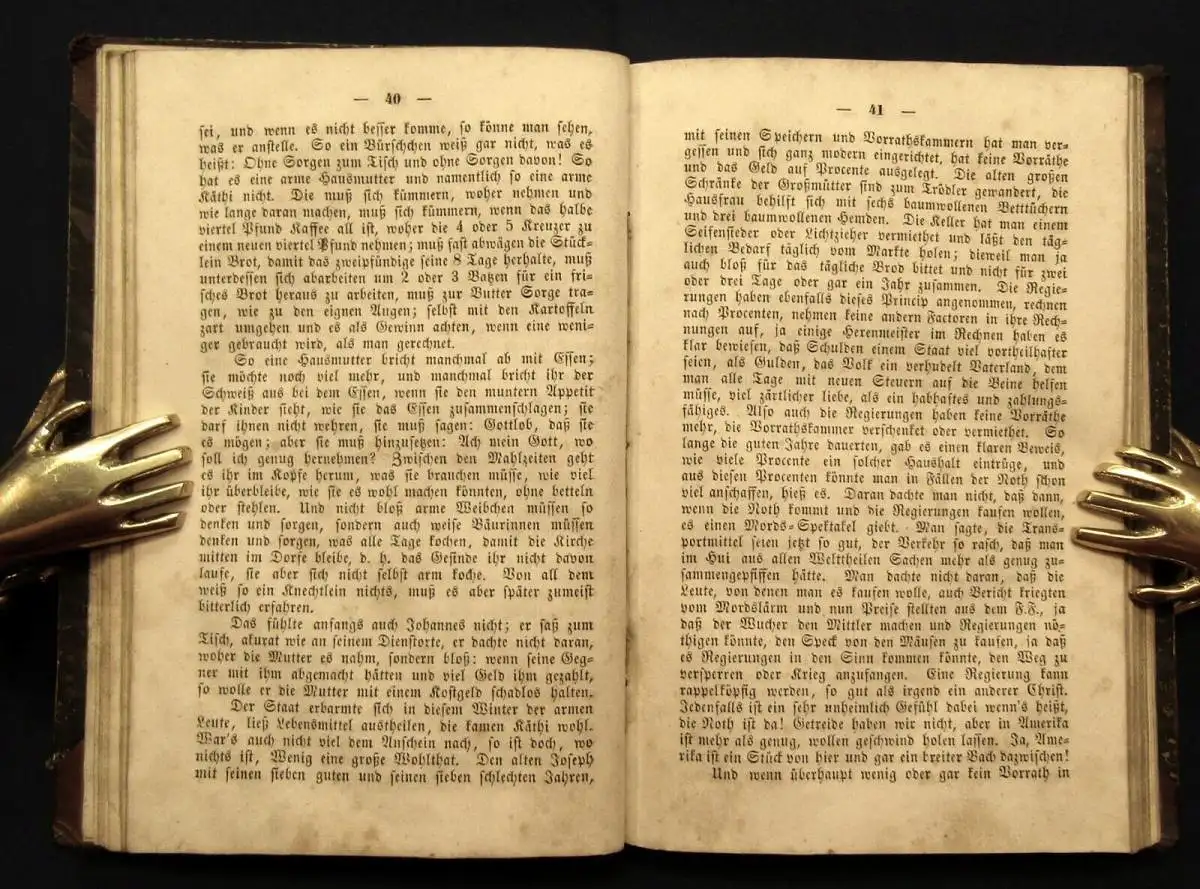 — 40 —
sei, und wenn es nicht besser komme, so könne man sehen,
was er anstelle. So ein Bürschchen weiß gar nicht, was es
heißt: Ohne Sorgen zum Tisch und ohne Sorgen davon! So
hat es eine arme Hausmutter und namentlich so eine arme
Käthi nicht. Die muß sich kümmern, woher nehmen und
wie lange daran machen, muß sich kümmern, wenn das halbe
viertel Pfund Kaffee all ist, woher die 4 oder 5 Kreuzer zu
einem neuen viertel Pfund nehmen; muß fast abwägen die Stück-
lein Brot, damit das zweipfündige seine 8 Tage herhalte, muß
unterdessen sich abarbeiten um 2 oder 3 Batzen für ein fri-
sches Brot heraus zu arbeiten, muß zur Butter Sorge tra-
gen, wie zu den eignen Augen; selbst mit den Kartoffeln
zart umgehen und es als Gewinn achten, wenn eine weni-
ger gebraucht wird, als man gerechnet.
So eine Hausmutter bricht manchmal ab mit Essen;
sie möchte noch viel mehr, und manchmal bricht ihr der
Schweiß aus bei dem Essen, wenn sie den muntern Appetit
der Kinder sieht, wie sie das Essen zusammenschlagen; sie
darf ihnen nicht wehren, sie muß sagen: Gottlob, daß sie
es mögen; aber sie muß hinzusetzen: Ach mein Gott, wo
soll ich genug hernehmen? Zwischen den Mahlzeiten geht
es ihr im Kopfe herum, was sie brauchen müsse, wie viel
ihr überbleibe, wie sie es wohl machen könnten, ohne betteln
oder stehlen. Und nicht bloß arme Weibchen müssen so
denken und sorgen, sondern auch weise Bäurinnen müssen
denken und sorgen, was alle Tage kochen, damit die Kirche
mitten im Dorfe bleibe, d. h. das Gesinde ihr nicht davon
laufe, sie aber sich nicht selbst arm koche. Von all dem
weiß so ein Knechtlein nichts, muß es aber später zumeist
bitterlich erfahren.
Das fühlte anfangs auch Johannes nicht; er saß zum
Tisch, akurat wie an seinem Dienstorte, er dachte nicht daran,
woher die Mutter es nahm, sondern bloß: wenn seine Geg-
ner mit ihm abgemacht hätten und viel Geld ihm gezahlt,
so wolle er die Mutter mit einem Kostgeld schadlos halten.
Der Staat erbarmte sich in diesem Winter der armen
Leute, ließ Lebensmittel austheilen, die kamen Käthi wohl.
War's auch nicht viel dem Anschein nach, so ist doch, wo
nichts ist, Wenig eine große Wohlthat. Den alten Joseph
mit seinen sieben guten und seinen sieben schlechten Jahren,
— 41 —
mit seinen Speichern und Vorrathskammern hat man ver-
gessen und sich ganz modern eingerichtet, hat keine Vorräthe
und das Geld auf Procente ausgelegt. Die alten großen
Schränke der Großmütter sind zum Trödler gewandert, die
Hausfrau behilft sich mit sechs baumwollenen Betttüchern
und drei baumwollenen Hemden. Die Keller hat man einem
Seifensieder oder Lichtzieher vermiethet und läßt den täg-
lichen Bedarf täglich vom Markte holen; dieweil man ja
auch bloß für das tägliche Brod bittet und nicht für zwei
oder drei Tage oder gar ein Jahr zusammen. Die Regie-
rungen haben ebenfalls dieses Princip angenommen, rechnen
nach Procenten, nehmen keine andern Factoren in ihre Rech-
nungen auf, ja einige Herenmeister im Rechnen haben es
klar bewiesen, daß Schulden einem Staat viel vortheilhafter
seien, als Gulden, das Volk ein verhudelt Vaterland, dem
man alle Tage mit neuen Steuern auf die Beine helfen
müsse, viel zärtlicher liebe, als ein habhaftes und zahlungs-
fähiges. Also auch die Regierungen haben keine Vorräthe
mehr, die Vorrathskammer verschenket oder vermiethet. So
lange die guten Jahre dauerten, gab es einen klaren Beweis,
wie viele Procente ein solcher Haushalt eintrüge, und
aus diesen Procenten könnte man in Fällen der Noth schon
viel anschaffen, hieß es. Daran dachte man nicht, daß dann,
wenn die Noth kommt und die Regierungen kaufen wollen,
es einen Mords-Spektakel giebt. Man sagte, die Trans-
portmittel seien jetzt so gut, der Verkehr so rasch, daß man
im Hui aus allen Welttheilen Sachen mehr als genug zu-
sammengepfiffen hätte. Man dachte nicht daran, daß die
Leute, von denen man es kaufen wolle, auch Bericht kriegten
vom Mordslärm und nun Preise stellten aus dem F.F., ja
daß der Wucher den Mittler machen und Regierungen nö-
thigen könnte, den Speck von den Mäusen zu kaufen, ja daß
es Regierungen in den Sinn kommen könnte, den Weg zu
versperren oder Krieg anzufangen. Eine Regierung kann
rappelköpfig werden, so gut als irgend ein anderer Christ.
Jedenfalls ist ein sehr unheimlich Gefühl dabei wenn's heißt,
die Noth ist da! Getreide haben wir nicht, aber in Amerika
ist mehr als genug, wollen geschwind holen lassen. Ja, Ame-
rika ist ein Stück von hier und gar ein breiter Bach dazwischen!
Und wenn überhaupt wenig oder gar kein Vorrath in